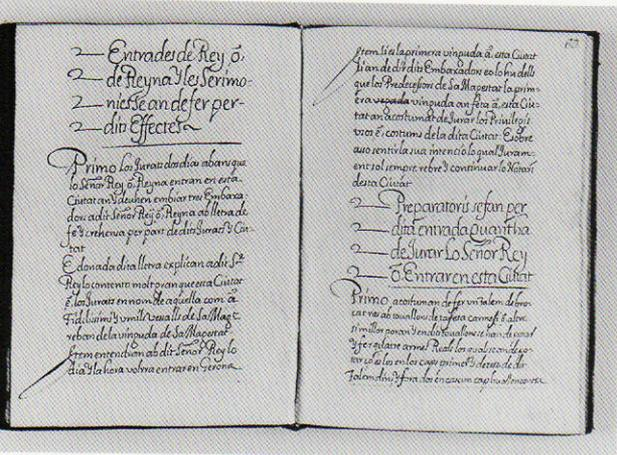 Entrades de Rey ó,
de Reyna y les Serimo-
nies Se an de fer per-
dit Effectes
Primo Los Jurats dos dias abans que
lo Señor Rey ó, Reyna entran en esta
Ciutat an y deuhen embiar tres Embaxa-
dors a dit Señor Rey ó, Reyna ab lletra de
fe y crehensa per part de dits Jurats y Ciu-
tat
E donada dita lletra explican a dit Sr
Rey lo contento molt gran que esta Ciutat
é, los Jurats en nom de aquella com á
Fidilisims y umils vasalls de Sa Magt
reban de la vinguda de Sa Magestat
Item entendran ab dit Señor Rey lo
dia y la hora volrra entrar en Gerona
Item Si es la primera vinguda á, esta Ciutat
li an de dir dits Embaxadors eo lo hu dells
que los Predecessors de Sa Magestat la prim-
era vegada vinguda an feta á, esta Ciu-
tat an acostumat de Jurar los Privilegis
usos é, costums de la dita Ciutat. E sobre
aso sentir la sua intenció lo qual Juram-
ent sol sempre rebre y continuar lo Notari
desta Ciutat
Preparatoris se fan per
dita entrada quant ha
de Jurar Lo Señor Rey
ó, Entrar en esta Ciutat
Primo, acostuman de fer un Talem de bro-
cat
y fer quatre armes Reals los quals
Talem